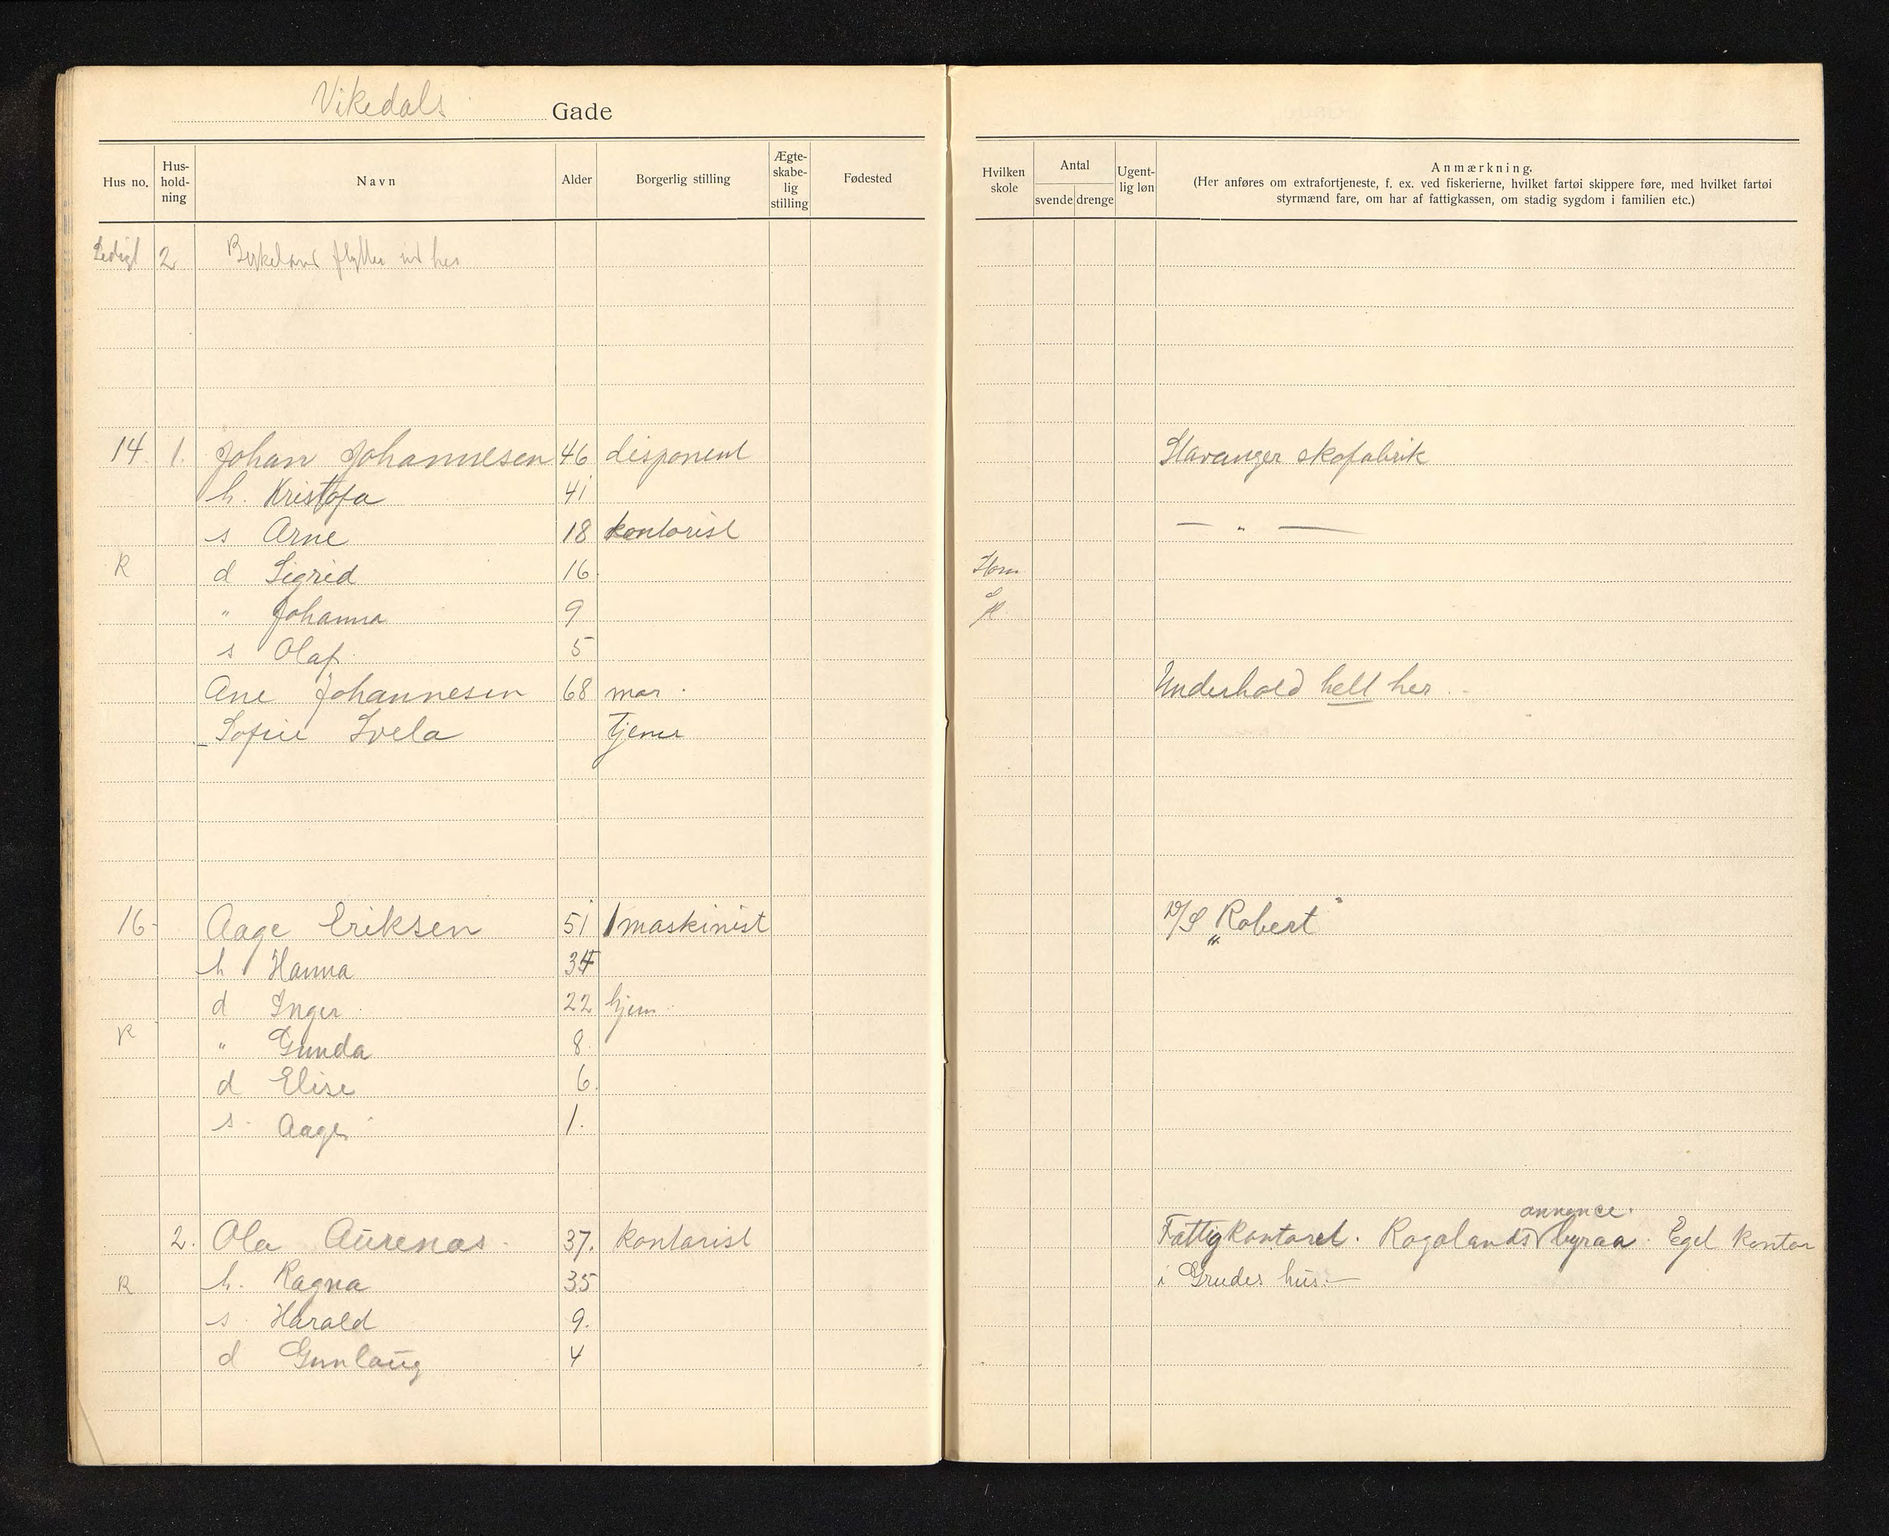 Vikedals Gade
Hus no. Hus-hold-ning Navn Alder Borgerlig stilling Ægte-skabe-lig stilling Fødested
Hvilken skole Antal svende drenge Ugent-lig løn Anmærkning.
(Her anføres om extrafortjeneste, f. ex. ved fiskerierne, hvilket fartøi skippere føre, med hvilket fartøi
styrmænd fare, om har af fattigkassen, om stadig sygdom i familien etc.)
Ledigt 2 Birkeland flytter ind her
14 1. Johan Johannesen 46 disponent Stavanger skofabrik
h. Kristofa 41
s Arne 18 kontorist — „ —
R d Sigrid 16
„ Johanna 9
s Olaf 5
Ane Johannesen 68 mor Underhold helt her
Sofie Svela Tjener
16 Aage Eriksen 51 1 maskinist D/S „Robert"
h Hanna 34
d Inger 22 hjem
R „ Gunda 8
d Elise 6
s. Aage 1.
annonce
2. Ola Aurenas 37. kontorist Fattigkontoret. Rogalands byraa. Eget kontor
R h. Ragna 35 i Grudes hus. —
s Harald 9.
d Gunlaug 4